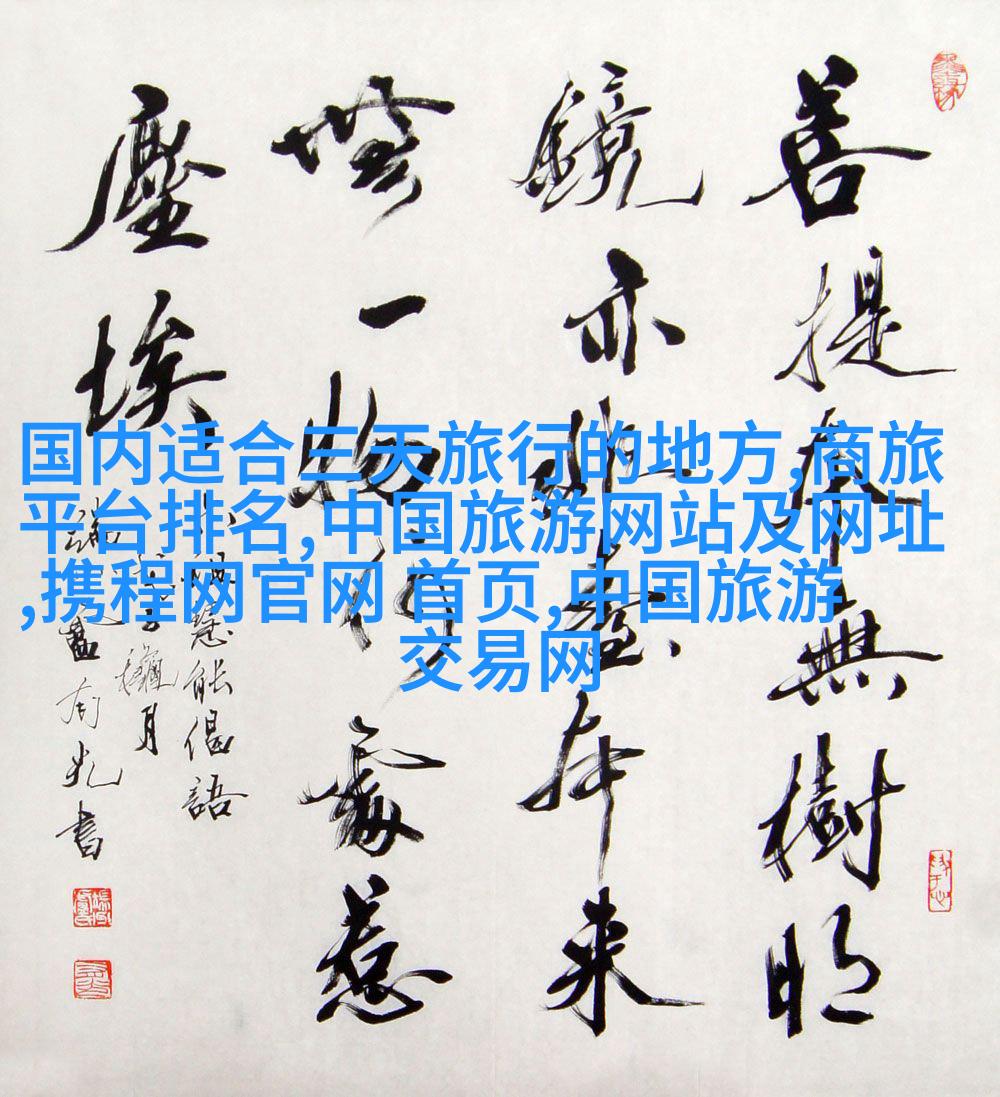 菩提本無樹明
鏡亦非臺本来
無一物何處惹
塵埃
慧能偈語
月
書
国内适合三天旅行的地方,商旅
平台排名,中国旅游网站及网址
,携程网官网 首页,中国旅游
交易网